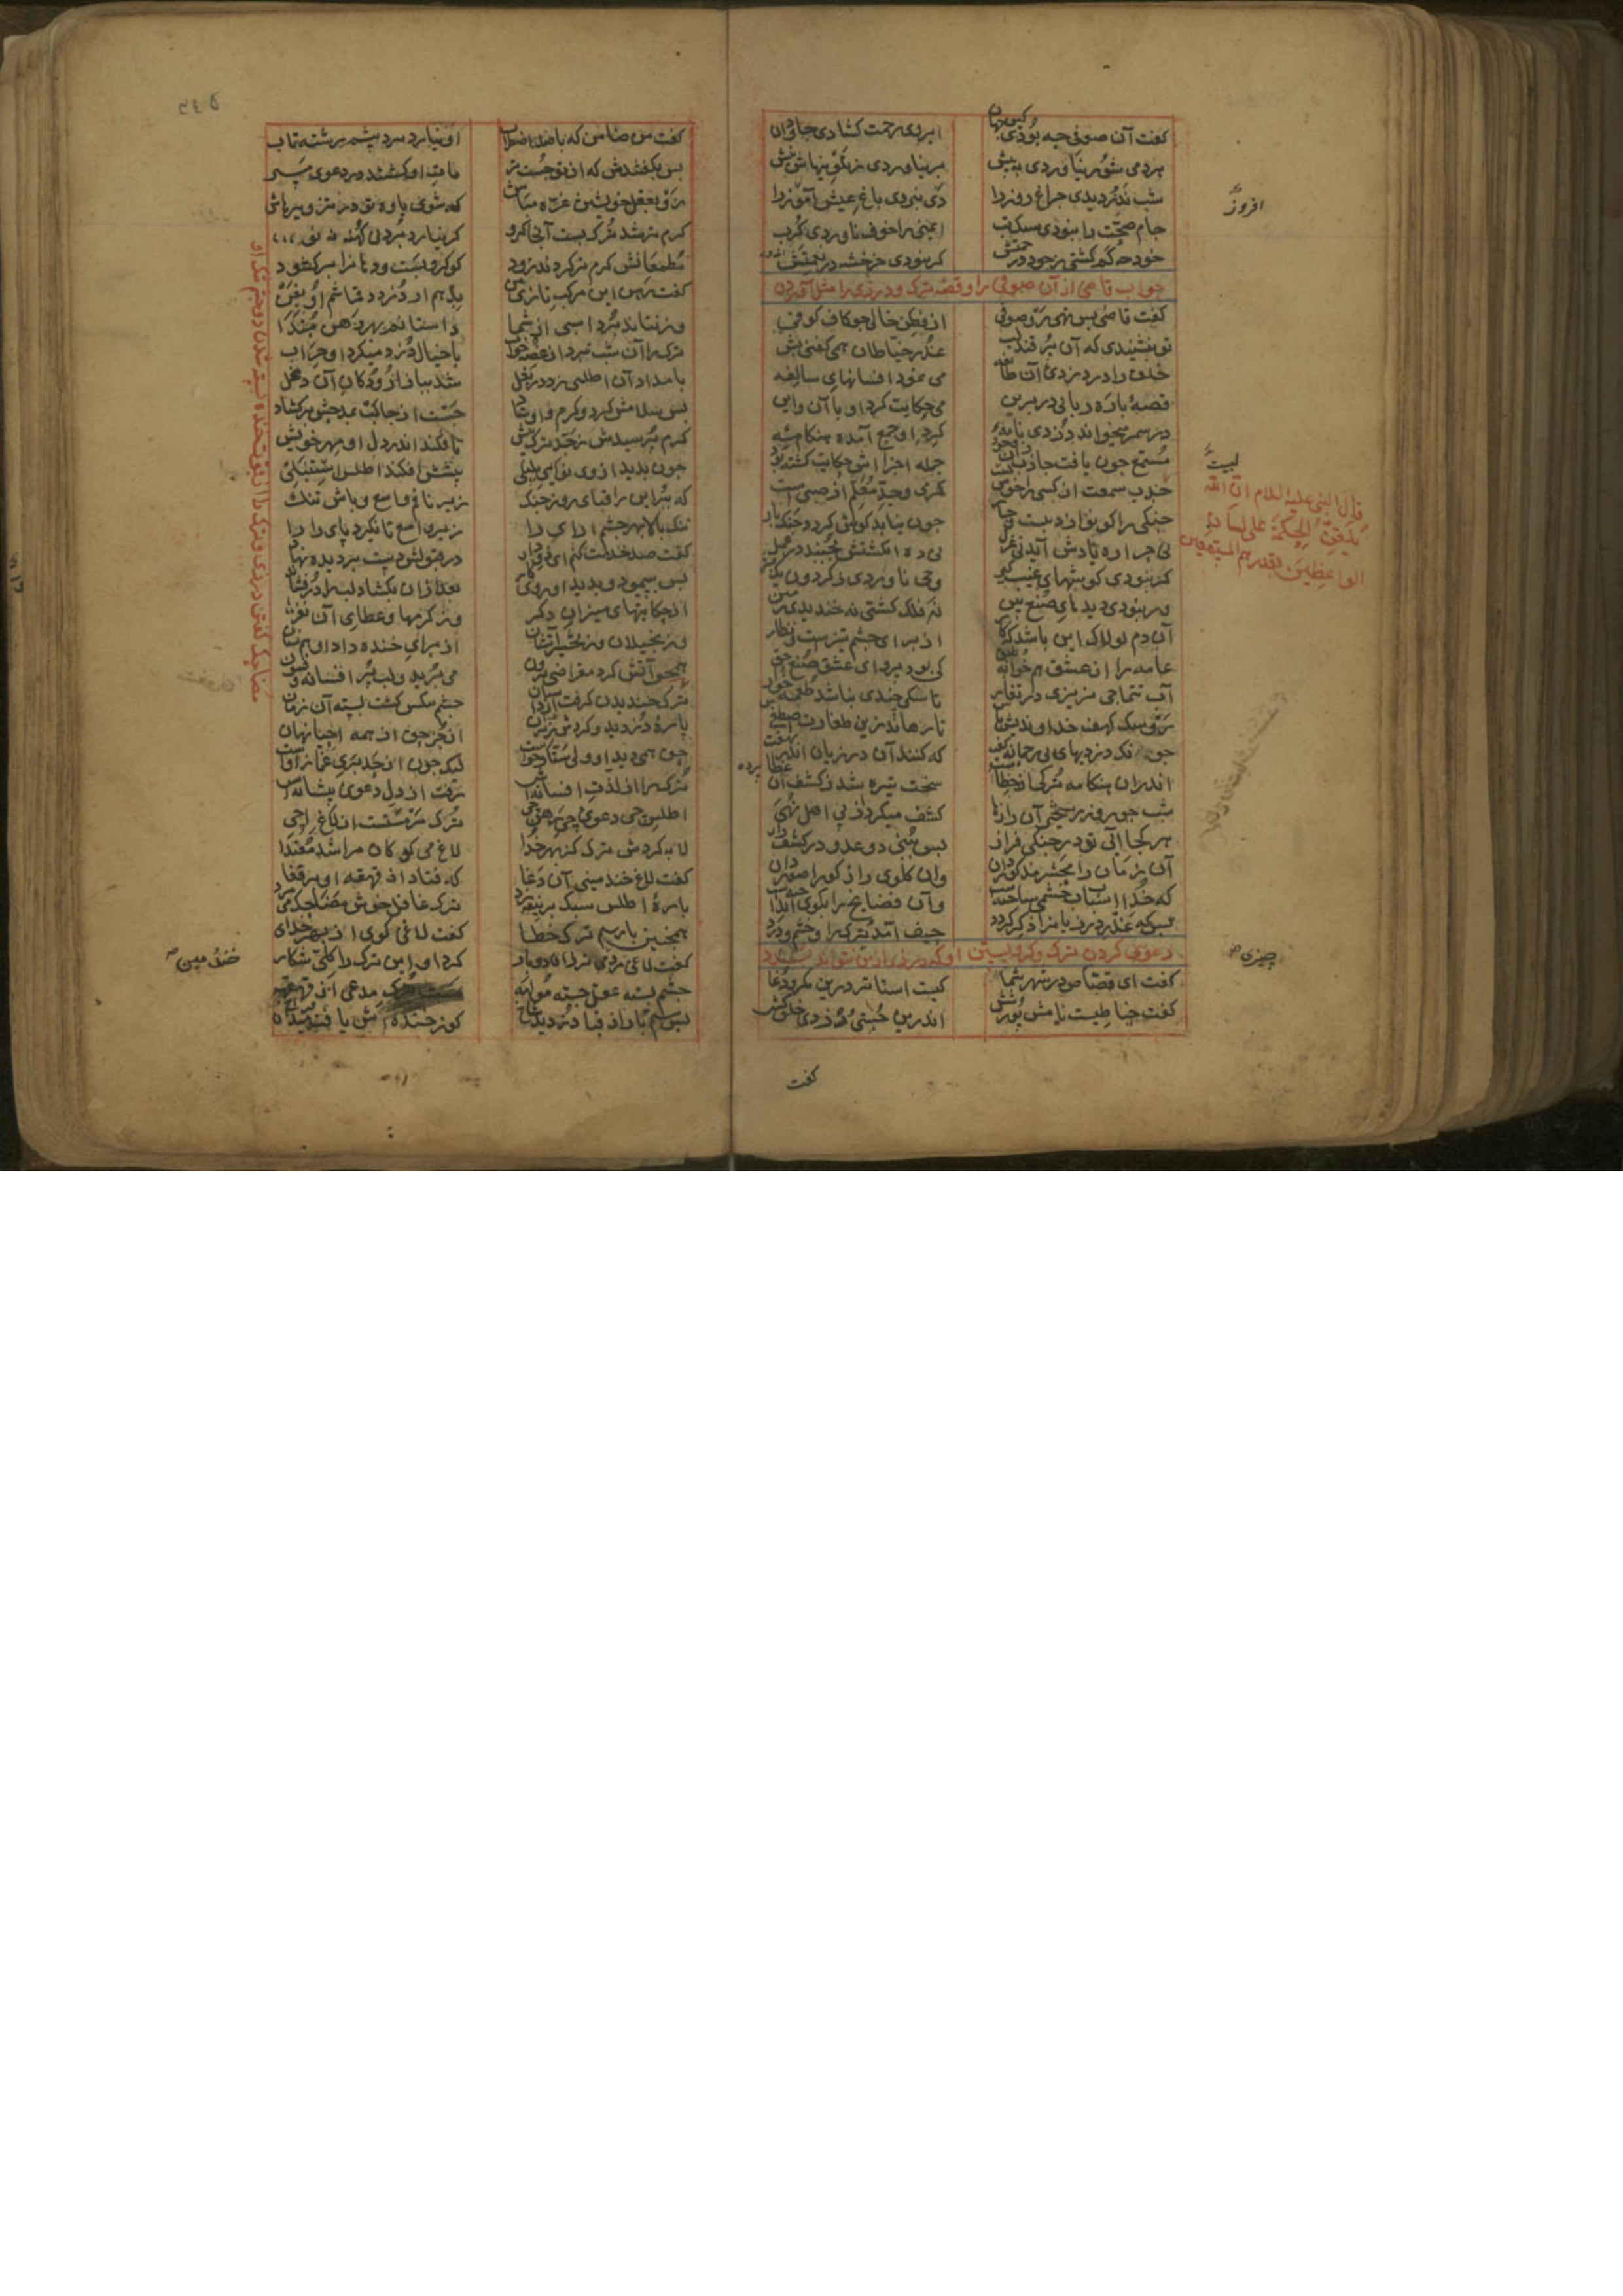 گفت آن صوفی چه بودی کین جهان
ابروی رحمت کشادی جاودان
هر دمی شور نیاوردی به پیش
بر نیاوردی ز تلوینهاش نیش
شب ندزدیدی چراغ روز را
دی نبردی باغ عیش آموز را
جام صحت را نبودی سنک تب
ایمنی را خوف ناوردی کرب
خود چه کم کشتی ز جود و رحمتش
کر نبودی خرخشه در نعمتش
جواب قاضی از آن صوفی را و قصه ترک و درزی را مثل آوردن
گفت قاضی بس تهی رو صوفی
از فطن خالی چو کاف کوفی
تو بنشنیدی که آن پر قند لب
غدر خیاطان همی گفتی بشب
خلق را در دزدی آن طایفه
می نمود افسانهای سالفه
قصهٔ پاره ربایی در برین
می حکایت کرد او با آن و این
در سمر میخواند دزدی نامهٔ
کرد او جمع آمده هنکامهٔ
مستمع چون یافت جاذب
جمله اجزااش حکایت کشته بود
جذب سمعست ار کسی را خوش
کرمی و جد معلم از صبی است
چنکی را کو نوازد بیست و چار
چون نیابد کوش کردد چنک بار
نی حراره یادش آید نی غزل
نی ده انکشتش بجنبد در عمل
کر نبودی کوشهای غیب کیر
وحی ناوردی ز کردون یک بشیر
ور نبودی دیدهای صنع بین
نه فلک کشتی نه خندیدی زمین
آن دم لولاک این باشد که کار
از برای چشم تیزست و نظار
عامه را از عشق هم خوابه و طبق
کی بود پروای عشق صنع حق
آب تتماجی نریزی در تغار
تا سکی چندی نباشد طعمه خوار
رو سک کهف خداوندیش باش
تا رهاند زین تغارت اصطفاش
چونک دزدیهای بی رحمانه گفت
که کنند آن درزیان اندر نهفت
اندران هنکامه ترکی از خطا
سخت تیره شد ز کشف آن غطا
شب چو روز رستخیز آن رازها
کشف میکرد از پی اهل نهی
هر کجا آیی تو در جنکی فراز
بس ببینی دو عدو در کشف راز
آن زمان را محشر مذکور دان
وان کلوی راز کو را صور دان
که خدا اسباب خشمی ساختست
وآن فضایح را بکوی انداختست
بس که غدر درزیانرا ذکر کرد
حیف آمد ترک را و خشم و درد
دعوی کردن ترک و کرو بستن او که درزی از من نتواند
گفت ای قصاص در شهر شما
کیست استاتر درین مکر و دغا
گفت خیاطیست نامش پور شش
اندرین چستی و دزدی خلق کش
گفت
افروز
لبیب
قال النبی علیه السلام ان الله
یلقن الحکمة علی لسان
الواعظین بقدر همم المستمعین
چیزی
گفت من ضامن که با صد اضطراب
او نیارد برد پیشم رشته تاب
بس بگفتندش که از تو چست تر
مات او کشتند در دعوی مپر
رو بعقل خویشتن غره مباش
که شوی یاوه تو در تزویرهاش
کرم تر شد ترک بست آنجا کرو
که نیارد برد نی کهنه نه نو
مطمعانش کرم تر کردند زود
کو کرو بست و دهانرا برکشود
که کرو این مرکب تازی من
بدهم ار دزدد قماشم او بفن
ور نتاند برد اسبی از شما
وا ستانم بهر رهن مبتدا
ترک را آن شب نبرد از غصه خواب
با خیال دزد میکرد او حراب
بامداد آن اطلسی زد در بغل
شد ببازار و دکان آن دغل
بس سلامش کرد و کرم و اوستاد
جست از جا لب بمدحش برکشاد
کرم پرسیدش ز حد ترک بیش
تا فکند اندر دل او مهر خویش
چون بدید از وی نوای بلبلی
پیشش افکند اطلس استنبلی
که ببر این را قبای روز جنک
زیر نافم واسع و بالاش تنک
تنک بالا بهر جسم آرای را
زیر واسع تا نکیرد پای را
گفت صد خدمت کنم ای ذو وداد
در قبولش دست بر دیده نهاد
بس بپیمود و بدید او روی کار
بعد ازان بکشاد لب را در فشار
از حکایتهای میران دکر
وز کرمها و عطای آن نفر
وز بخیلان و ز تحشیراتشان
از برای خنده داد او هم نشان
همچو آتش کرد مقراضی برون
می برید و لب پر افسانه و فسون
مضاحک گفتن درزی و ترک را از قوت خنده بسته شدن دو چشم تنک او
ترک خندیدن کرفت از داستان
چشم تنکش کشت بسته آن زمان
پارهٔ دزدید و کردش زیر ران
از جز حق از همه احیا نهان
حق همی دید او ولی ستار خوست
لیک چون از حد بری غماز اوست
ترک را از لذت افسانه‌اش
رفت از دل دعوی پیشانه‌اش
اطلس چی دعوی چی رهن چی
ترک سرمستست از لاغ اچی
لابه کردش ترک کز بهر خدا
لاغ می کو کان مرا شد مغتذا
گفت لاغ خندمینی آن دغا
که فتاد از قهقهه او بر قفا
پارهٔ اطلس سبک بر نیفه زد
ترک غافل خوش مضاحک می مزد
همچنین بار سیم ترک خطا
گفت لاغی کوی از بهر خدای
گفت لاغی زان دوبار
کرد او این ترک را کلی شکار
چشم بسته عقل جسته مولهه
مست ترک مدعی از قهقهه
بس سیم بار از قبا دزدید شاخ
کز خنده‌اش یافت میدان
خندمین